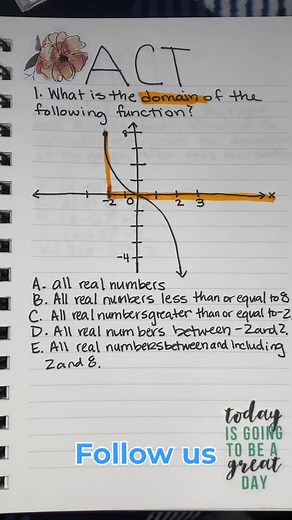 ACT
1. What is the domain of the
following function?
8
x
-2 0 2 3
-4
A. all real numbers
B. All real numbers less than or equal to 8
C. All real numbers greater than or equal to -2
D. All real numbers between -2 and 2.
E. All real numbers between and including
2 and 8.
today
IS GOING
TO BE A
great
DAY
Follow us